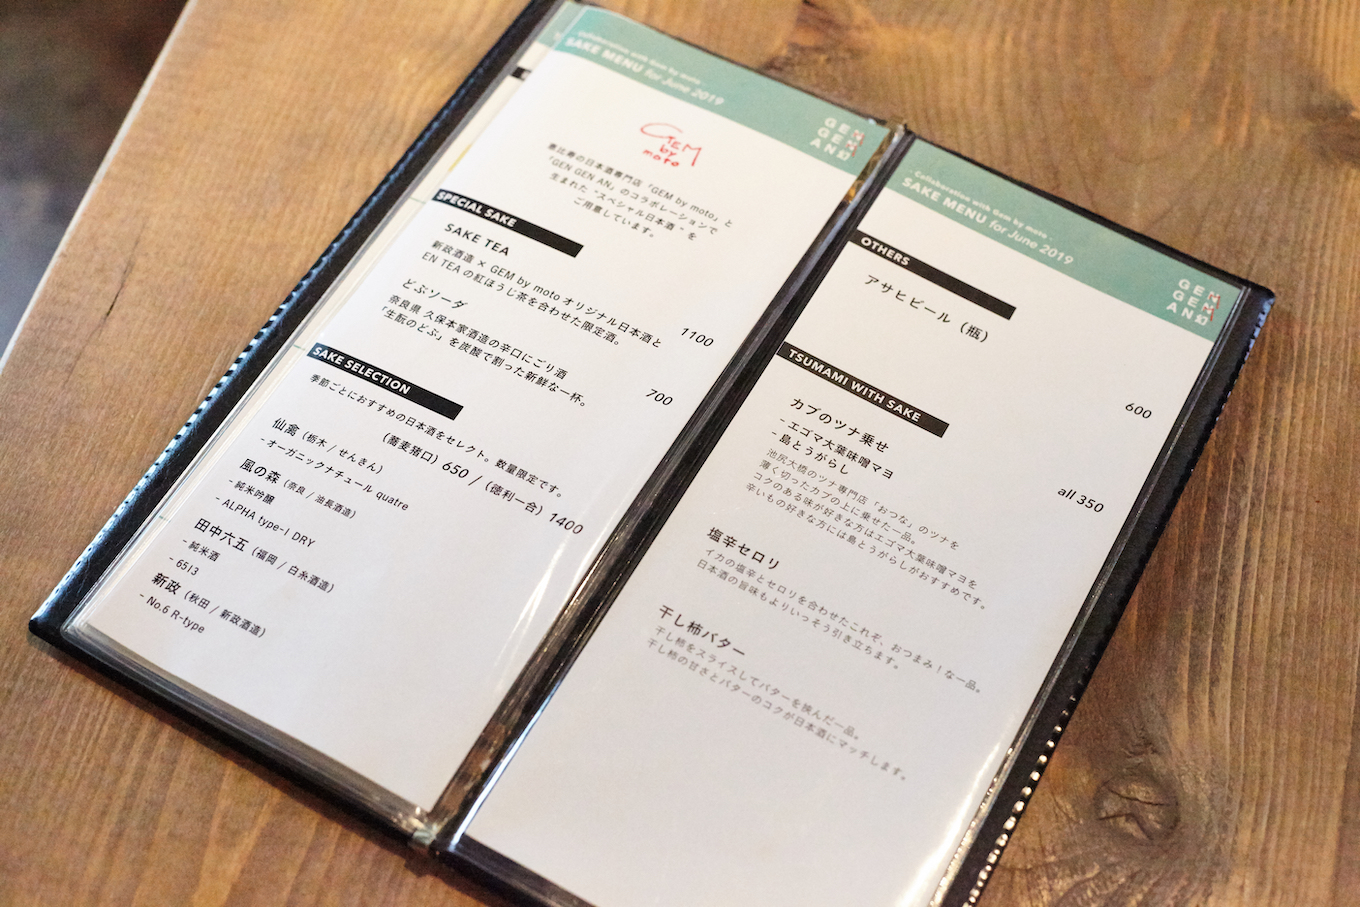 - Collaboration with Gem by moto -
SAKE MENU for June 2019
GEN
GEN
AN幻
GEM
by
moto
恵比寿の日本酒専門店「GEM by moto」と
「GEN GEN AN」のコラボレーションで
生まれた"スペシャル日本酒"を
ご用意しています。
SPECIAL SAKE
SAKE TEA
新政酒造 × GEM by moto オリジナル日本酒と
EN TEA の紅ほうじ茶を合わせた限定酒。
1100
どぶソーダ
奈良県 久保本家酒造の辛口にごり酒
「生酛のどぶ」を炭酸で割った新鮮な一杯。
700
SAKE SELECTION
季節ごとにおすすめの日本酒をセレクト。数量限定です。
(蕎麦猪口) 650 / (徳利一合) 1400
仙禽 (栃木 / せんきん)
- オーガニックナチュール quatre
風の森 (奈良 / 油長酒造)
- 純米吟醸
- ALPHA type-I DRY
田中六五 (福岡 / 白糸酒造)
- 純米酒
- 6513
新政 (秋田 / 新政酒造)
- No.6 R-type
- Collaboration with Gem by moto -
SAKE MENU for June 2019
GEN
GEN
AN幻
OTHERS
アサヒビール (瓶)
600
TSUMAMI WITH SAKE
all 350
カブのツナ乗せ
- エゴマ大葉味噌マヨ
- 島とうがらし
池尻大橋のツナ専門店「おつな」のツナを
薄く切ったカブの上に乗せた一品。
コクのある味が好きな方はエゴマ大葉味噌マヨを
辛いもの好きな方には島とうがらしがおすすめです。
塩辛セロリ
イカの塩辛とセロリを合わせたこれぞ、おつまみ！な一品。
日本酒の旨味もよりいっそう引き立ちます。
干し柿バター
干し柿をスライスしてバターを挟んだ一品。
干し柿の甘さとバターのコクが日本酒にマッチします。